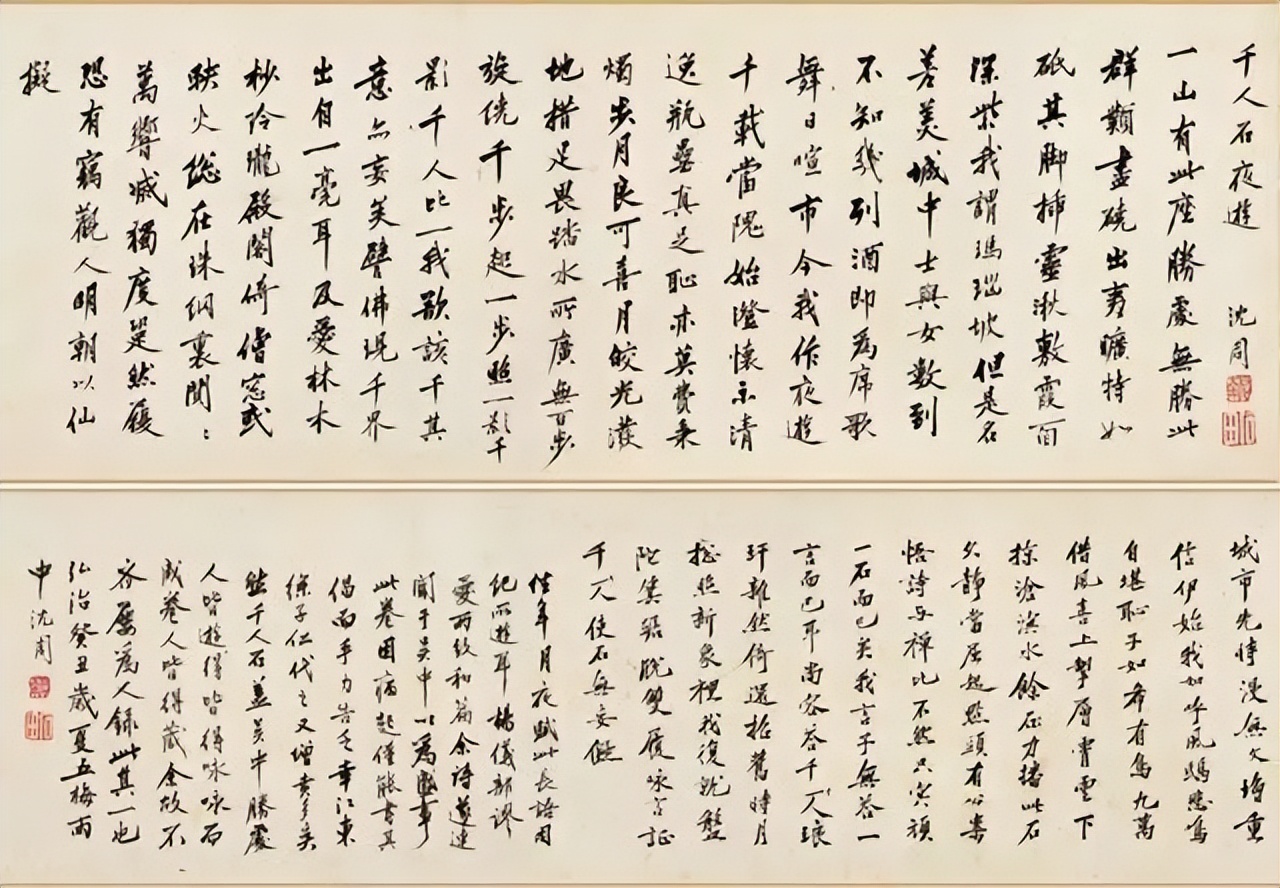 千人石夜遊 沈周
一山有此座勝處無勝此
群類盡硗出夷曠特如
砥其脚插靈湫敷霞面
深紫我謂瑪瑙坡但是名
差美城中士與女數到
不知幾列酒即為席歌
舞日喧市今我作夜遊
千載當隗始澄懷示清
逸瓶罍真足恥亦莫費秉
燭步月良可喜月皎光潑
地措足畏踏水所廣無百步
旋侊千步起一步照一影千
影千人比一我欲該千其
意亦妄矣譬佛現千界
出自一毫耳及愛林木
杪玲瓏殿閣倚僧窓或
映火總在珠網裏閴〻
萬響滅獨度跫然履
恐有竊觀人明朝以仙
擬
城市先時漫無文重
信伊始我如呼風鳴
自堪恥子如希有鳥九萬
借風喜上掣層霄雲下
掠滄溟水餘石力搘此石
久靜當起點頭有公案
悟詩与禪比不然只頑
一石而已矣我言子無荅一
言而已耳尚容荅千人琅
玕雜然倚還拈舊時月
搃照新象裡我復就盤
陀箕踞脫雙履咏言証
千人使石無妄儗
往年月夜賦此長語用
紀所遊耳楊儀部謬
愛兩致和篇余詩遂連
聞于吳中以為盛事
此卷因病起僅能書其
倡而手力告乏幸江東
徐子仁代之又增贵多矣
然千人石蓋吳中勝處
人皆遊得皆得咏而
成卷人皆得藏余故不
吝屢為人録此其一也
弘治癸丑歲夏五梅雨
中沈周